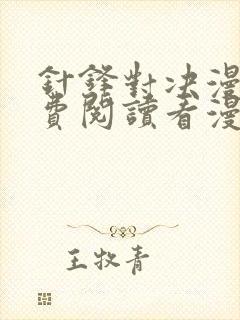 針鋒對決漫
費閱讀看漫
王牧青